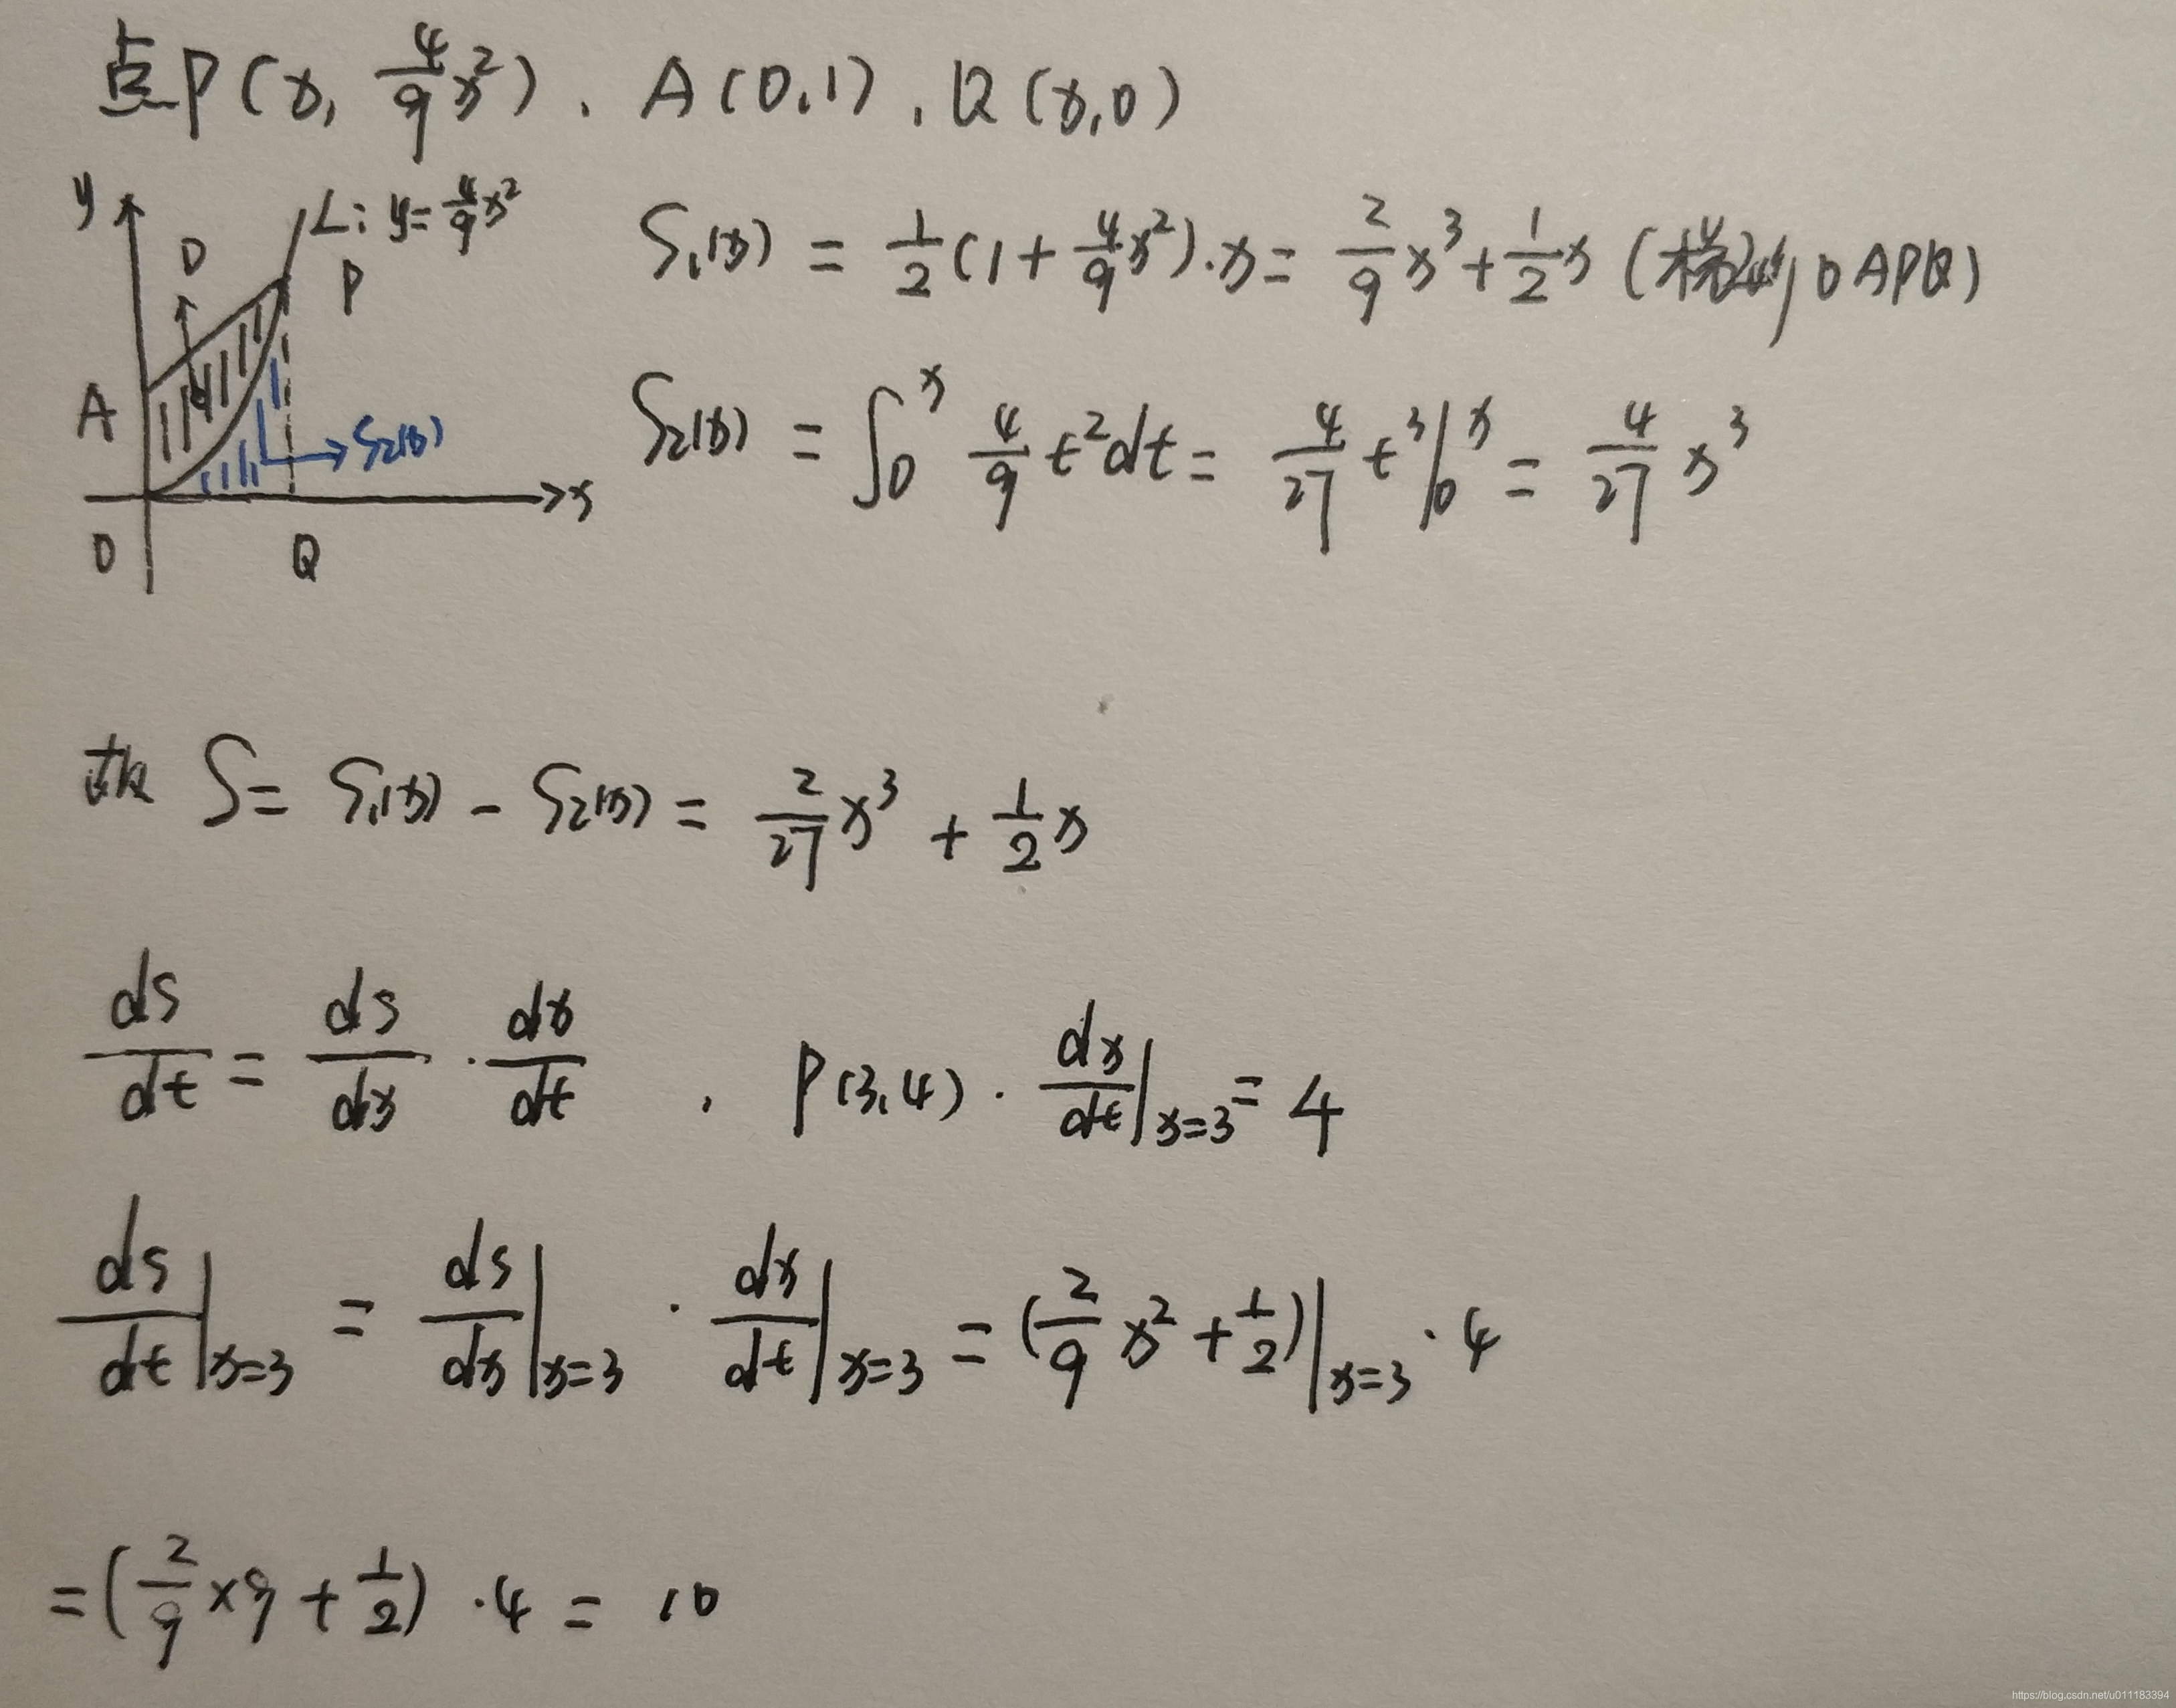 点P(x, 4/9 x²), A(0,1), Q(x,0)
y
L: y=4/9 x²
D
P
A
S₂(x)
x
O
Q
S₁(x) = 1/2(1+4/9 x²)·x = 2/9 x³+1/2 x (梯形OAPQ)
S₂(x) = ∫₀ˣ 4/9 t²dt = 4/27 t³|₀ˣ = 4/27 x³
故 S = S₁(x) - S₂(x) = 2/27 x³ + 1/2 x
ds/dt = ds/dx · dx/dt , P(3,4). dx/dt|x=3 = 4
ds/dt|x=3 = ds/dx|x=3 · dx/dt|x=3 = (2/9 x²+1/2)|x=3 · 4
=(2/9 ×9 + 1/2) ·4 = 10
https://blog.csdn.net/u011183394